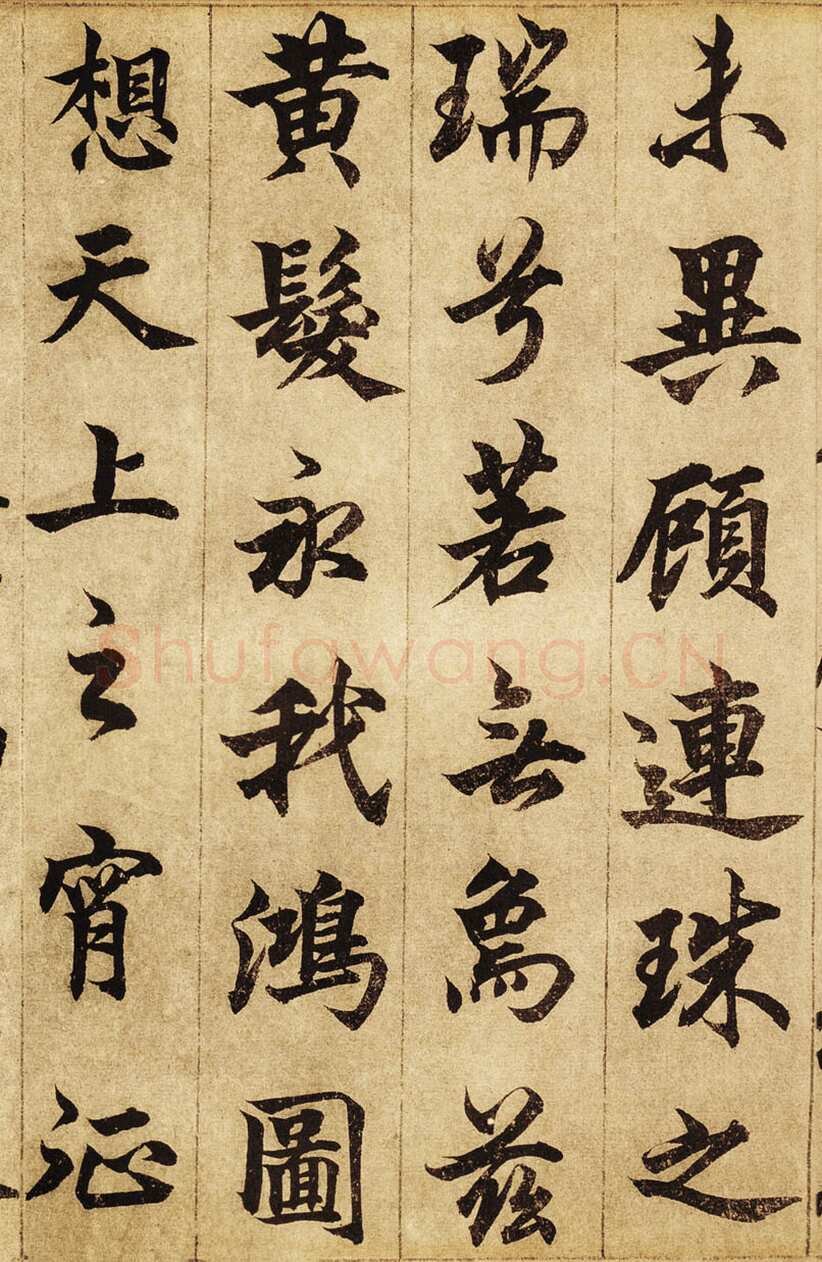 未異顧連珠之
瑞兮若無爲茲
黄髮永我鴻圖
想天上之宵征
Shufawang.CN